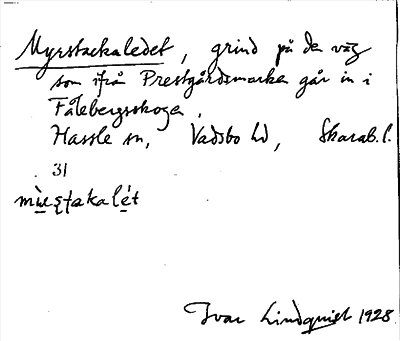 Myrstackaledet, grind på den väg
som ifrå Prestgårdsmarka går in i
Fålebergsskoga,
Hassle sn, Vadsbo hd, Skarab. l.
31
Ivar Lindquist 1928